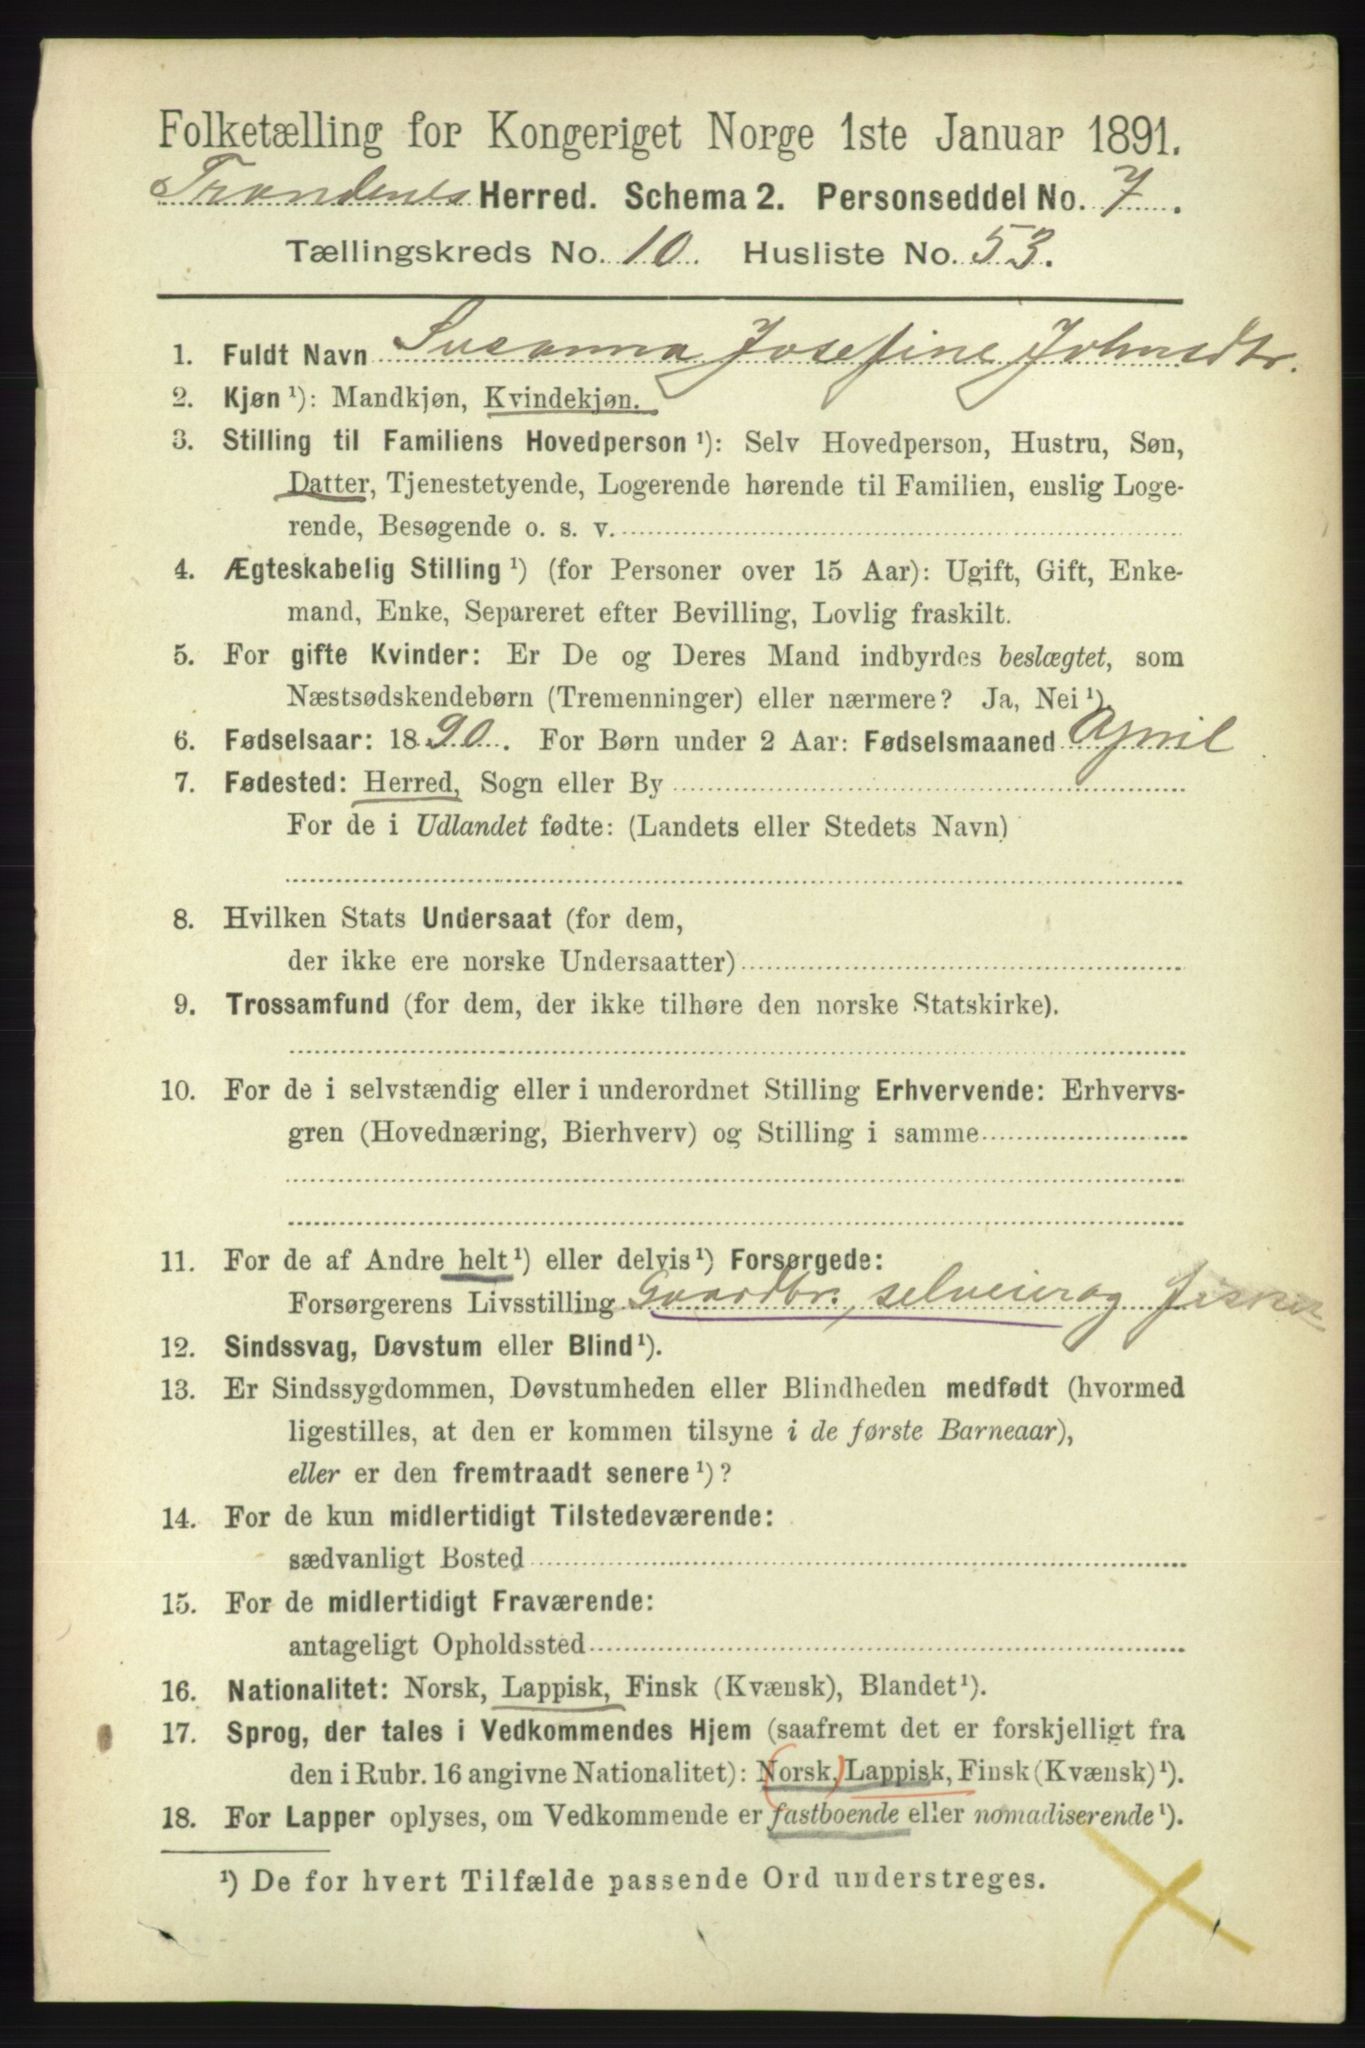 Folketælling for Kongeriget Norge 1ste Januar 1891.
Trondenes Herred. Schema 2. Personseddel No. 7.
Tællingskreds No. 10. Husliste No. 53.
1. Fuldt Navn Susanna Josefine Johnsdtr.
2. Kjøn ¹): Mandkjøn, Kvindekjøn.
3. Stilling til Familiens Hovedperson ¹): Selv Hovedperson, Hustru, Søn,
Datter, Tjenestetyende, Logerende hørende til Familien, enslig Loge-
rende, Besøgende o. s. v.
4. Ægteskabelig Stilling ¹) (for Personer over 15 Aar): Ugift, Gift, Enke-
mand, Enke, Separeret efter Bevilling, Lovlig fraskilt.
5. For gifte Kvinder: Er De og Deres Mand indbyrdes beslægtet, som
Næstsødskendebørn (Tremenninger) eller nærmere? Ja, Nei ¹).
6. Fødselsaar: 1890. For Børn under 2 Aar: Fødselsmaaned April
7. Fødested: Herred, Sogn eller By
For de i Udlandet fødte: (Landets eller Stedets Navn)
8. Hvilken Stats Undersaat (for dem,
der ikke ere norske Undersaatter)
9. Trossamfund (for dem, der ikke tilhøre den norske Statskirke).
10. For de i selvstændig eller i underordnet Stilling Erhvervende: Erhvervs-
gren (Hovednæring, Bierhverv) og Stilling i samme
11. For de af Andre helt ¹) eller delvis ¹) Forsørgede:
Forsørgerens Livsstilling Gaardbr. selveier og fisker
12. Sindssvag, Døvstum eller Blind ¹).
13. Er Sindssygdommen, Døvstumheden eller Blindheden medfødt (hvormed
ligestilles, at den er kommen tilsyne i de første Barneaar),
eller er den fremtraadt senere ¹)?
14. For de kun midlertidigt Tilstedeværende:
sædvanligt Bosted
15. For de midlertidigt Fraværende:
antageligt Opholdssted
16. Nationalitet: Norsk, Lappisk, Finsk (Kvænsk), Blandet ¹).
17. Sprog, der tales i Vedkommendes Hjem (saafremt det er forskjelligt fra
den i Rubr. 16 angivne Nationalitet): Norsk, Lappisk, Finsk (Kvænsk) ¹).
18. For Lapper oplyses, om Vedkommende er fastboende eller nomadiserende ¹).
¹) De for hvert Tilfælde passende Ord understreges.